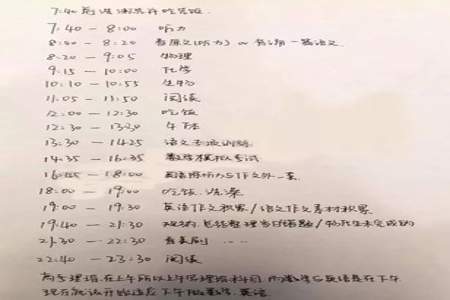 7:40前洗漱完并吃完饭.
7:40 — 8:00 听力
8:00 — 8:20 看原文(听力) or 背诵一篇语文
8:20 — 9:05 物理
9:15 — 10:00 化学
10:10 — 10:55 生物
11:05 — 11:50 阅读
12:00 — 12:30 吃饭
12:30 — 13:30 午休
13:30 — 14:25 语文专项训练
14:35 — 16:35 数学模拟考试
16:45 — 18:00 英语除听力与作文外一套
18:00 — 19:00 吃饭 洗澡
19:00 — 19:30 英语作文积累/语文作文素材积累
19:40 — 21:30 总结整理当日错题/补充未完成的
21:30 — 22:30 看美剧 ......
22:40 — 23:30 阅读
高考理综在上午所以上午写理综科目,而数学与英语是在下午
现在就该开始适应下午做数学、英语